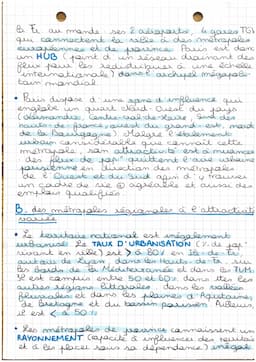 la Fr au monde : ses 2 aéroports, 4 gares TGV
qui connectent la ville à des métropoles
européennes et de province. Paris est donc
un HUB (point d'un réseau drainant des
flux pour les redistribuer à une échelle
internationale) dans l'archipel mégapoli-
tain mondial
• Paris dispose d'une zone d'influence qui
englobe un quart Nord-Ouest du pays
(Normandie, Centre-Val de Loire, Sud des
Hauts de France, ouest du Grand-est, nord
de la Bourgogne). Malgré l'étalement
urbain considérable que connaît cette
métropole, son attractivité est à nuancer
: des flux de pop° quittent l'aire urbaine
parisienne en direction des métropoles
de l'Ouest et du Sud afin d'y trouver
un cadre de vie agréable et aussi des
emplois qualifiés
B. des métropoles régionales à l'attractivité
variée
• Le territoire national est inégalement
urbanisé. Le TAUX D'URBANISATION (% de pop°
vivant en ville) est > à 80% en Île-de-Fr,
autour de Lyon, dans les Hauts-de-Fr, sur
les bords de la Méditerranée et dans les TUM.
Il est compris entre 50 et 60% dans les
autres régions littorales, dans les vallées
fluviales et dans les plaines d'Aquitaine,
de Bretagne et du bassin parisien. Ailleurs
il est < à 50%
• Les métropoles de province connaissent un
RAYONNEMENT (capacité à influencer des territoires
et à les placer sous sa dépendance) inégal